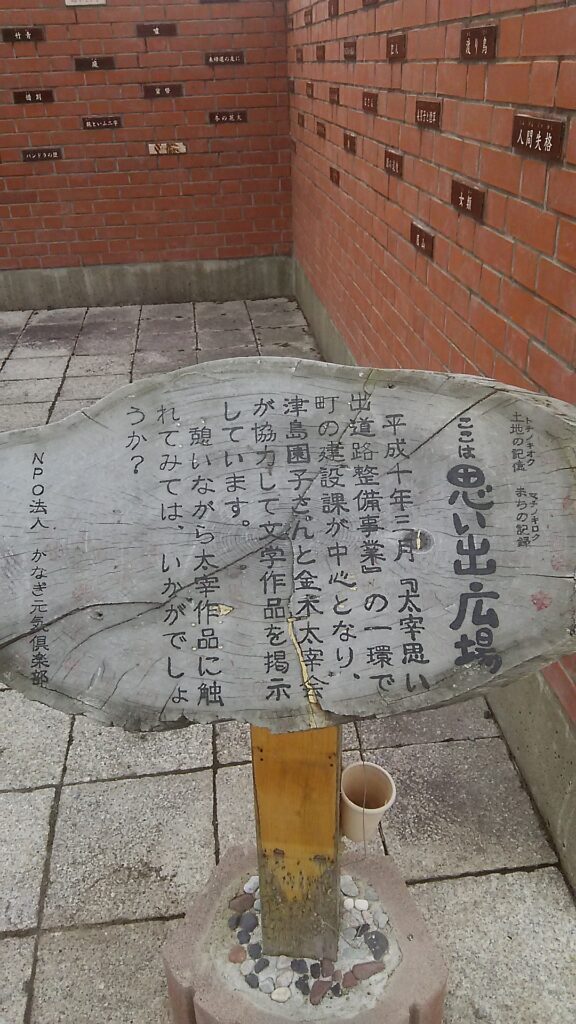 トチノキオク
土地の記憶
マチノキロク
まちの記録
ここは思い出広場
平成十年三月『太宰思い
出道路整備事業』の一環で
町の建設課が中心となり、
津島園子さんと金木太宰会
が協力して文学作品を掲示
しています。
憩いながら太宰作品に触
れてみては、いかがでしょ
うか？
NPO法人 かなぎ元気倶楽部
渡り鳥
人間失格
女類
眉山
犯人
竹青
惜別
パンドラの匣
親といふ二字
冬の花火
庭
嘘
貨幣